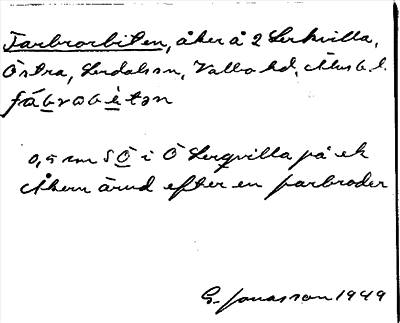 Farbrorbiten, åker å 2 Lerkvilla,
Östra, Lerdalssn, Valbo hd, Älvsb. l.
fárbrorbìtən
0,5 sm S Ö i Ö Lergvilla på ek
Åkern ärvd efter en farbroder
G. Jonasson 1949